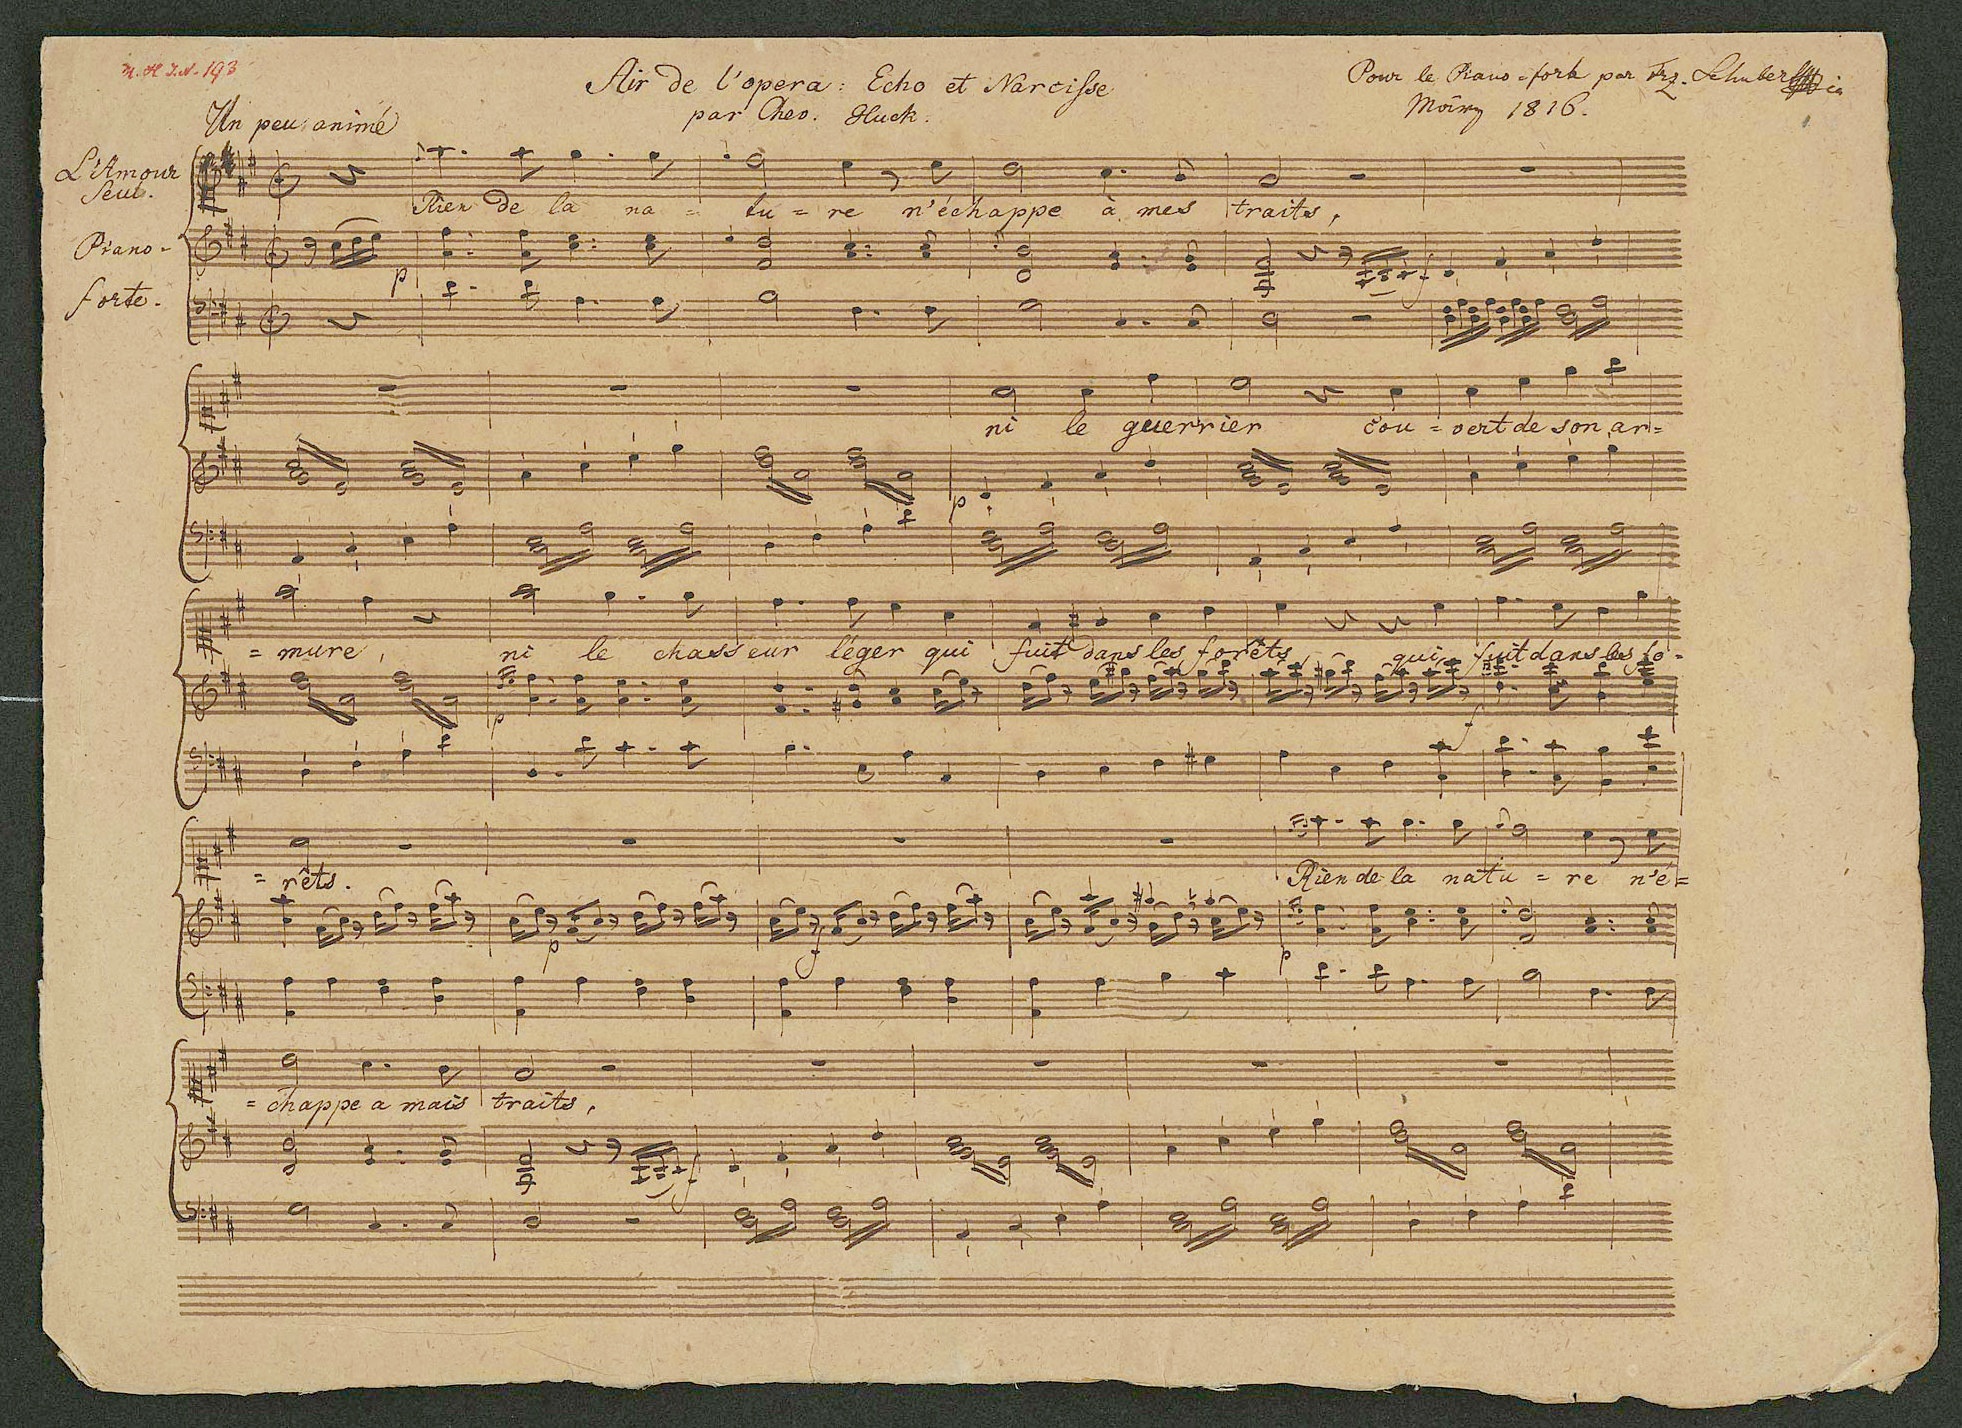 M. H. I. N. 193
Air de l'opera: Echo et Narcisse
par Chev. Gluck.
Pour le Piano-forte par Frz. Schubert
März 1816.
Un peu animé
L'Amour
seul.
Rien de la na = tu = re n'échappe à mes traits,
Piano-
forte.
p f
ni le guerrier cou = vert de son ar =
p
= mure, ni le chasseur léger qui fuit dans les forêts, qui fuit dans les fo =
p f
= rêts. Rien de la natu = re n'é =
p f p
= chappe a mais traits,
f